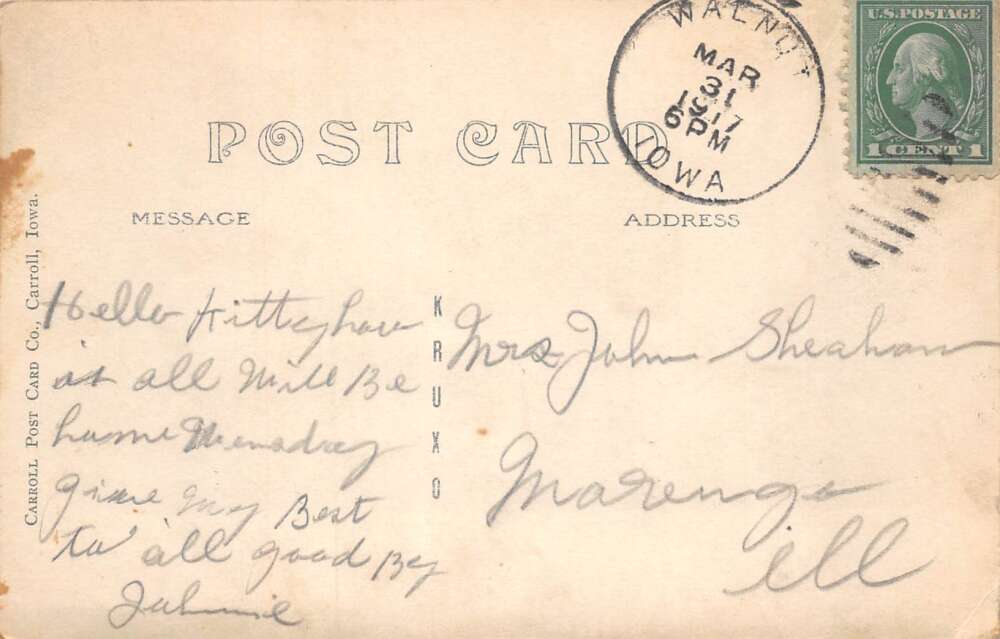 WALNUT
MAR
31
1917
6 PM
IOWA
U.S. POSTAGE
1 CENT 1
POST CARD
MESSAGE
ADDRESS
CARROLL POST CARD CO., Carroll, Iowa.
KRUXO
Hello Kitty how
is all Will Be
home Monday
give my Best
to all good By
Johnnie
Mrs John Sheahan
Marengo
Ill